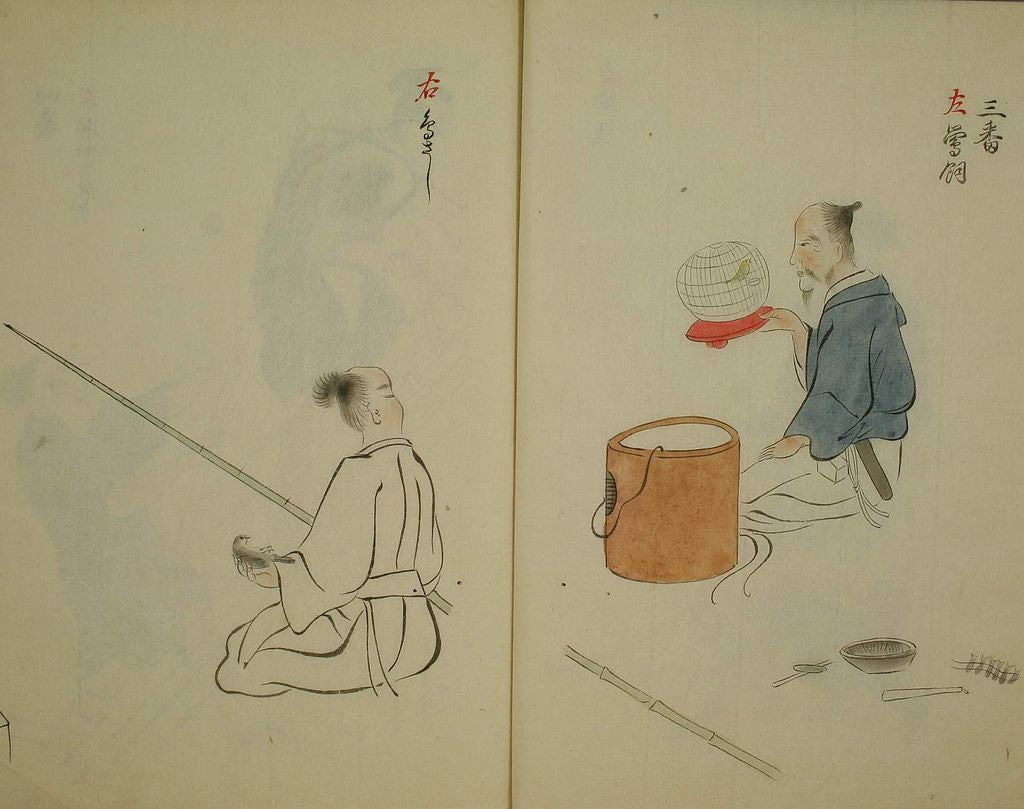 三番
左 鶯飼
右 鳥さし